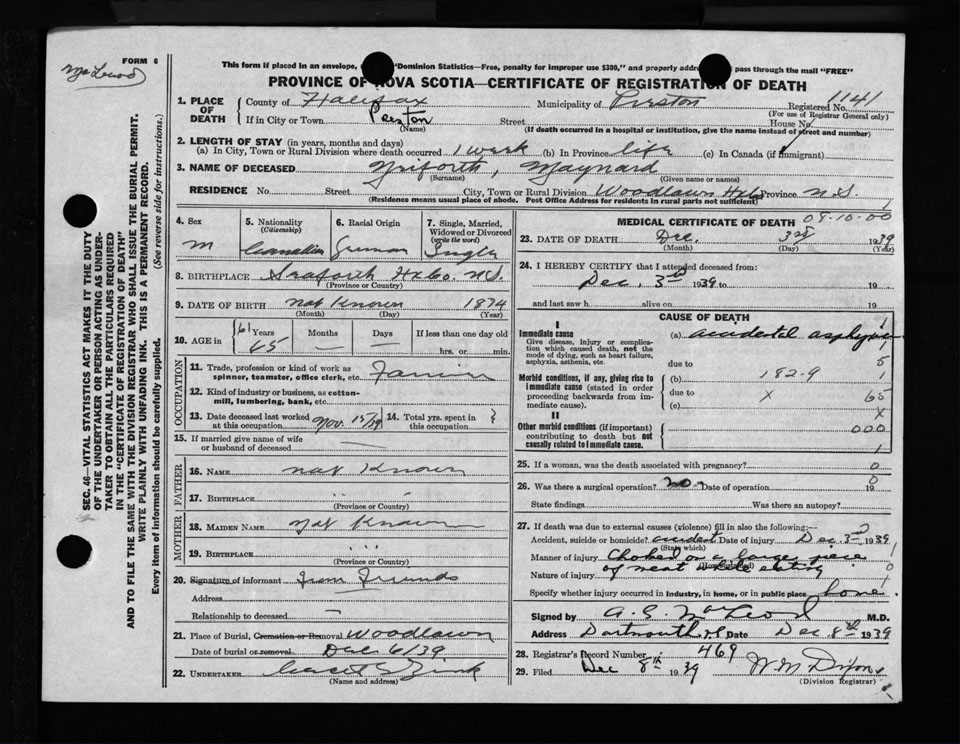 FORM 6
This form if placed in an envelope, "Dominion Statistics—Free, penalty for improper use $300," and properly addre pass through the mail "FREE"
PROVINCE OF NOVA SCOTIA—CERTIFICATE OF REGISTRATION OF DEATH
1. PLACE OF DEATH County of Halifax Municipality of Preston Registered No. 1141
(For use of Registrar General only)
If in City or Town Preston Street House No.
(Name) (If death occurred in a hospital or institution, give the name instead of street and number)
2. LENGTH OF STAY (in years, months and days)
(a) In City, Town or Rural Division where death occurred 1 week (b) In Province life (c) In Canada (if immigrant)
3. NAME OF DECEASED , Maynard
(Surname) (Given name or names)
RESIDENCE No. Street City, Town or Rural Division Woodlawn Hx Co Province N.S.
(Residence means usual place of abode. Post Office Address for residents in rural parts not sufficient)
SEC. 46—VITAL STATISTICS ACT MAKES IT THE DUTY
OF THE UNDERTAKER OR PERSON ACTING AS UNDER-
TAKER TO OBTAIN ALL THE PARTICULARS REQUIRED
IN THE "CERTIFICATE OF REGISTRATION OF DEATH"
AND TO FILE THE SAME WITH THE DIVISION REGISTRAR WHO SHALL ISSUE THE BURIAL PERMIT.
WRITE PLAINLY WITH UNFADING INK. THIS IS A PERMANENT RECORD.
Every item of Information should be carefully supplied. (See reverse side for instructions.)
4. Sex 5. Nationality 6. Racial Origin 7. Single, Married,
(Citizenship) Widowed or Divorced
(write the word)
M Canadian German Single
8. BIRTHPLACE Seaforth Hx Co. N.S.
(Province or County)
9. DATE OF BIRTH not Known 1874
(Month) (Day) (Year)
10. AGE in 65 Years Months Days If less than one day old
hrs. or min.
OCCUPATION
11. Trade, profession or kind of work as
spinner, teamster, office clerk, etc. Farmer
12. Kind of industry or business, as cotton-
mill, lumbering, bank, etc.
13. Date deceased last worked at this occupation Nov. 15/39 14. Total yrs. spent in this occupation
15. If married give name of wife
or husband of deceased
FATHER
16. NAME not Known
17. BIRTHPLACE " "
(Province or County)
MOTHER
18. MAIDEN NAME Not Known
19. BIRTHPLACE " "
(Province or County)
20. Signature of informant from Friends
Address
Relationship to deceased —
21. Place of Burial, Cremation or Removal Woodlawn
Date of burial or removal Dec 6/39
22. UNDERTAKER Zink
(Name and address)
MEDICAL CERTIFICATE OF DEATH 08-10-00
23. DATE OF DEATH Dec. 3rd 1939
(Month) (Day)
24. I HEREBY CERTIFY that I attended deceased from:
Dec. 3rd 1939 to 19
and last saw h alive on 19
CAUSE OF DEATH
I
Immediate cause (a) accidental asphyxia
Give disease, injury or complica-
tion which caused death, not the
mode of dying, such as heart failure,
asphyxia, asthenia, etc. due to 5
Morbid conditions, if any, giving rise to
immediate cause (stated in order
proceeding backwards from im-
mediate cause). (b) 182-9 1
due to X 65
(c) X
II
Other morbid conditions (if important)
contributing to death but not
causally related to immediate cause. 000
1
25. If a woman, was the death associated with pregnancy? 0
26. Was there a surgical operation? no. Date of operation 19 0
State findings Was there an autopsy?
27. If death due to external causes (violence) fill in also the following:—
Accident, suicide or homicide? accident Date of injury Dec. 3rd 1939
(State which)
Manner of injury Choked on a large piece
Nature of injury of meat while eating
Specify whether injury occurred in industry, in home, or in public place home.
Signed by A. E. MacLeod M.D.
Address Dartmouth NS Date Dec 8th 1939
28. Registrar's Record Number 469
29. Filed Dec 8th 1939 W M Dixon
(Division Registrar)